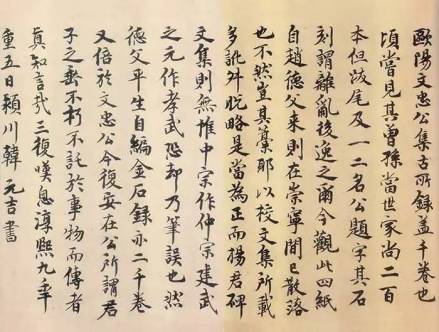 歐陽文忠公集古所錄蓋千卷也
頃嘗見其曾孫當世家尚二百
本但跋尾及一二名公題字其石
刻謂離亂後逸之爾今觀此四紙
自趙德父来則在崇寧間已散落
也不然豈其藁耶以校文集所載
多訛舛脫略是當為正而楊君碑
文集則無惟中宗作仲宗建武
之元作孝武恐却乃筆誤也然
德父平生自編金石錄亦二千卷
又倍於文忠公今復安在公所謂君
子之垂不朽不託於事物而傳者
真知言哉三復嘆息淳熙九年
重五日潁川韓元吉書